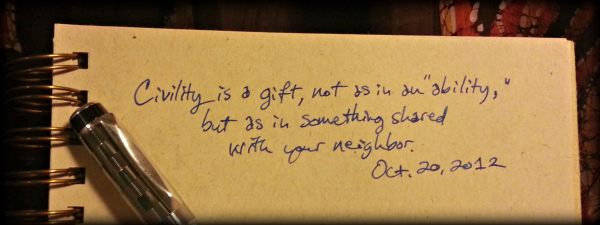 Civility is a gift, not as in an "ability,"
but as in something shared
with your neighbor.
Oct. 20, 2012